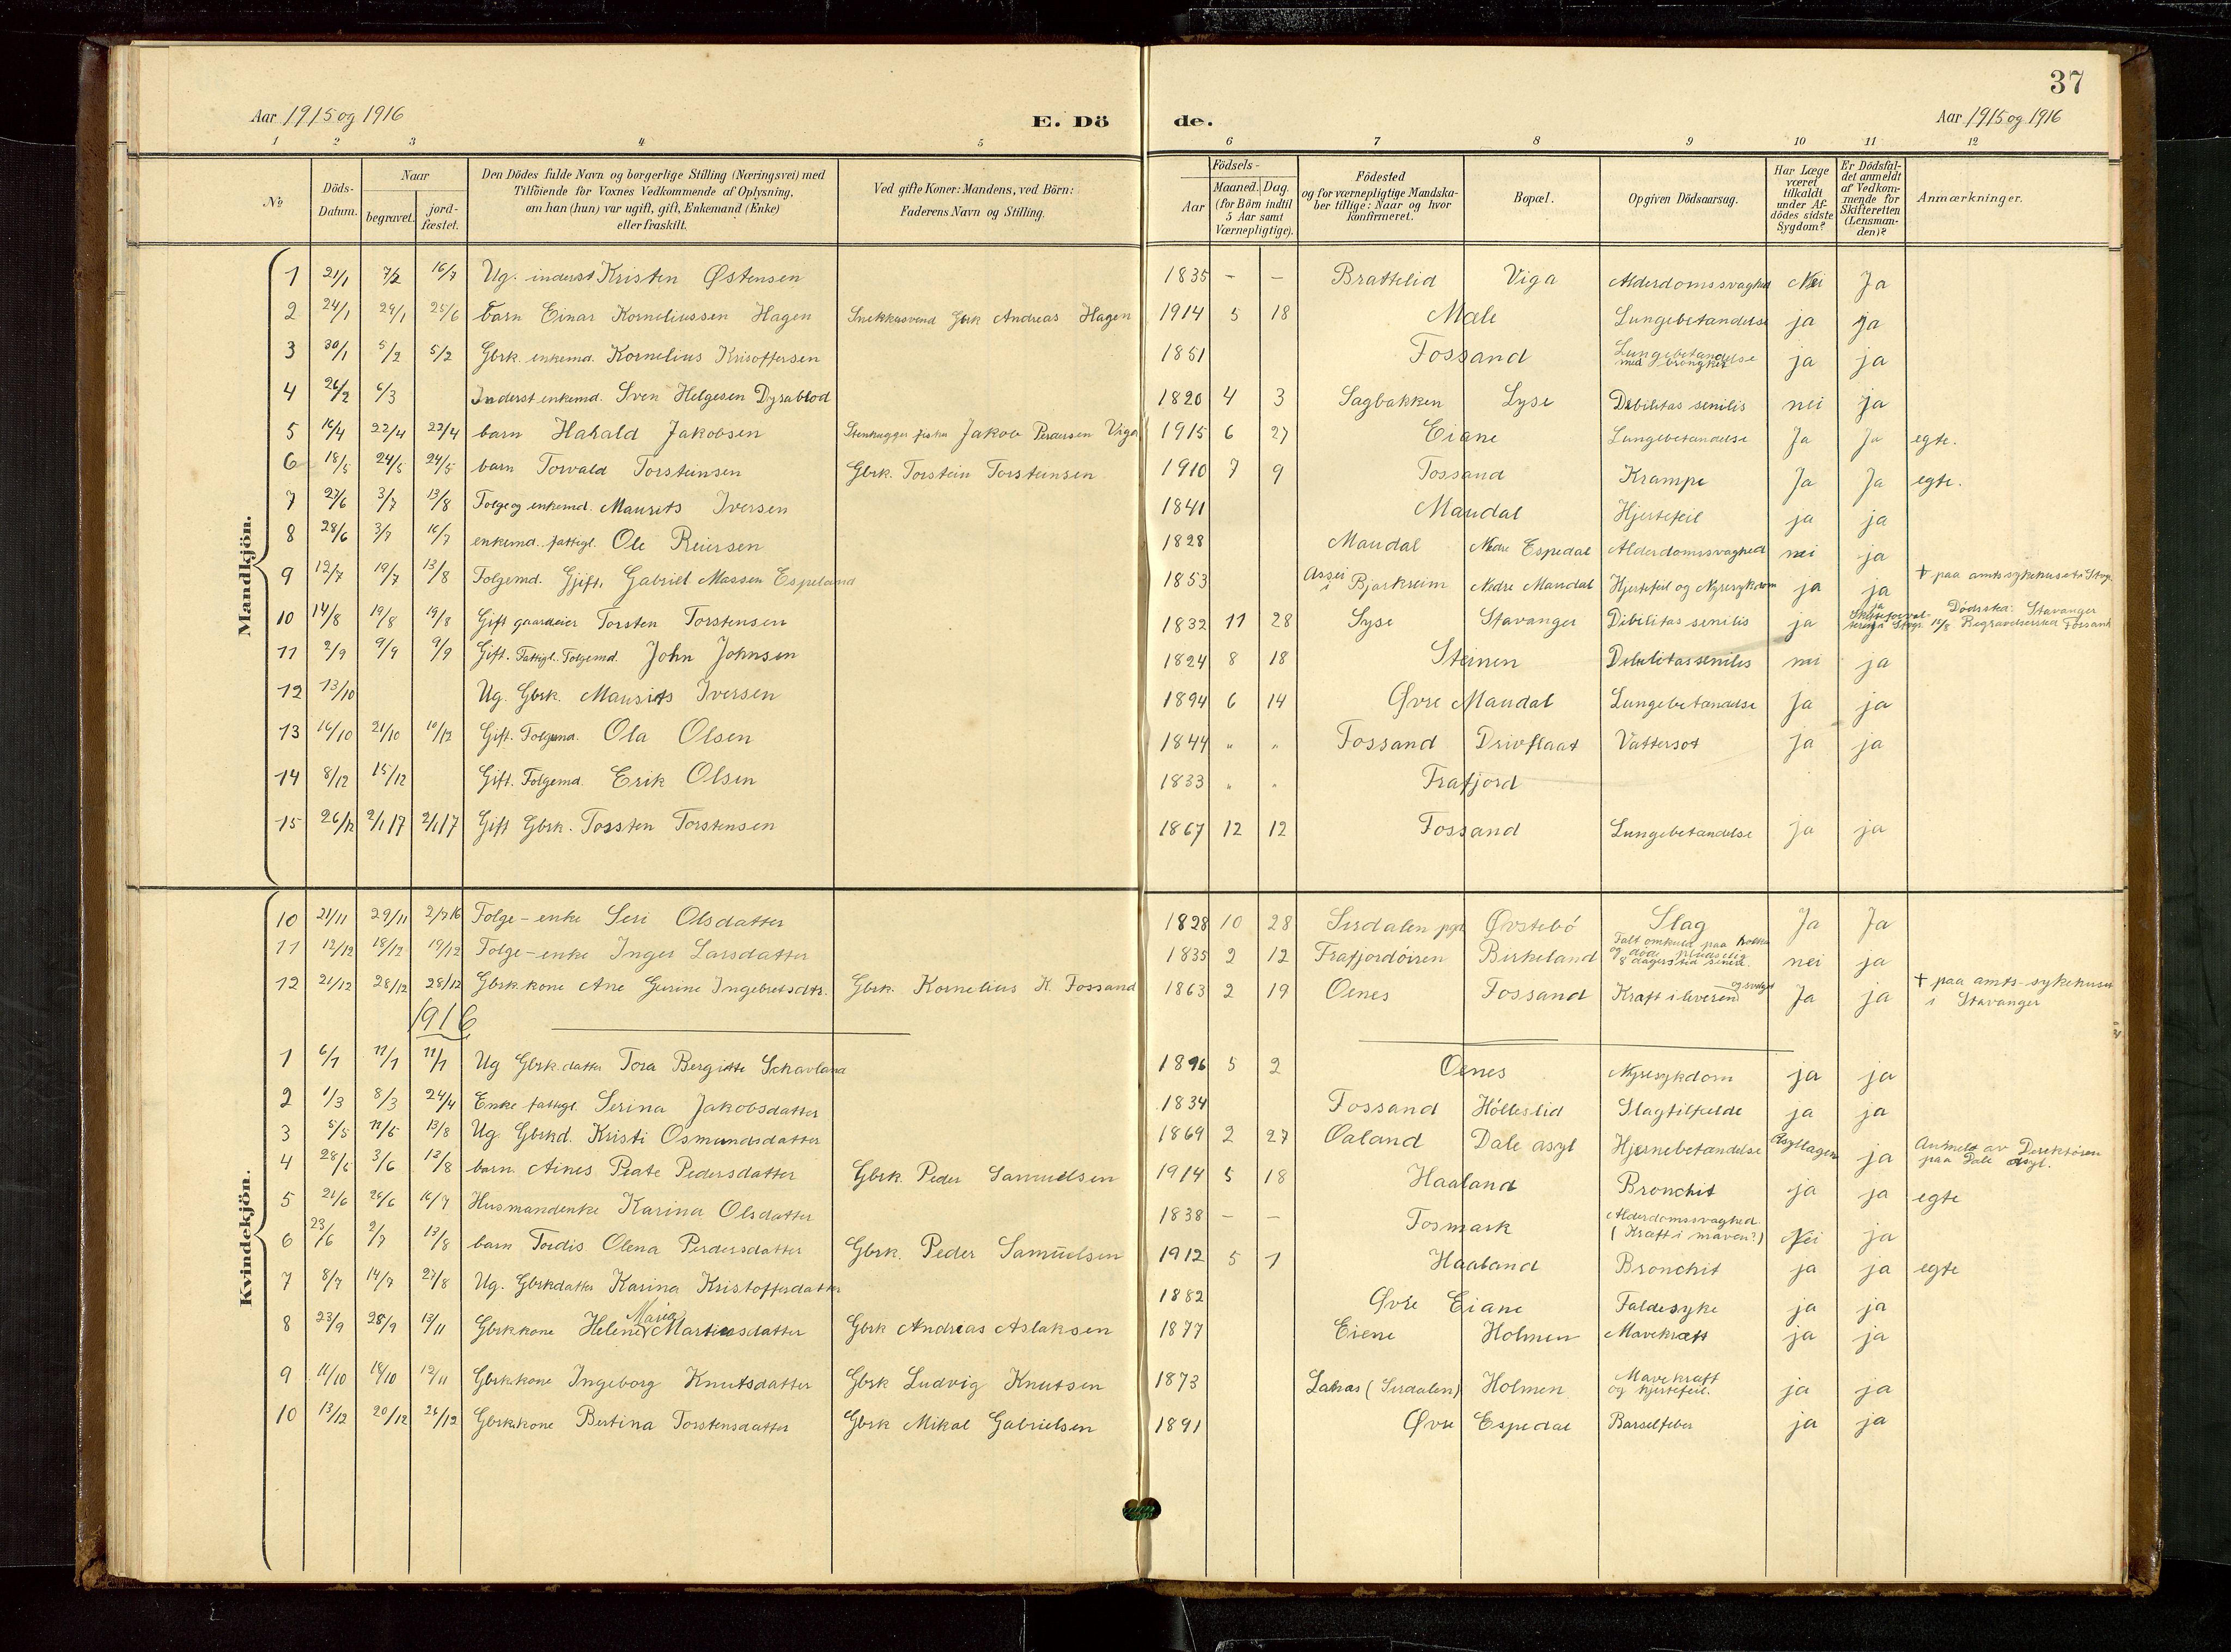 37
Aar 1915 og 1916 E. Dö de. Aar 1915 og 1916
1 2 3 4 5 6 7 8 9 10 11 12
№ Döds-Datum. Naar begravet. jordfæstet. Den Dödes fulde Navn og borgerlige Stilling (Næringsvei) med Tilföiende for Voxnes Vedkommende af Oplysning, om han (hun) var ugift, gift, Enkemand (Enke) eller fraskilt. Ved gifte Koner: Mandens, ved Börn: Faderens Navn og Stilling. Födsels- Aar Maaned. Dag. (for Börn indtil 5 Aar samt Værnepligtige). Födested og for værnepligtige Mandskaber tillige: Naar og hvor konfirmeret. Bopæl. Opgiven Dödsaarsag. Har Læge været tilkaldt under Afdödes sidste Sygdom? Er Dödsfaldet anmeldt af Vedkommende for Skifteretten (Lensmanden)? Anmærkninger.
Mandkjön.
1 21/1 7/2 16/7 Ug. inderst Kristen Østensen 1835 - - Brattelid Viga Alderdomssvaghed Nei Ja
2 24/1 29/1 25/6 barn Einar Korneliussen Hagen Snekkersvend Gbrk Andreas Hagen 1914 5 18 Mæle Lungebetændelse ja ja
3 30/1 5/2 5/2 Gbrk. enkemd. Kornelius Krisoffersen 1851 Fossand Lungebetændelse med brongkit ja ja
4 26/2 6/3 Inderst enkemd. Sven Helgesen Dyrablod 1820 4 3 Sagbakken Lyse Debilitas senilis nei ja
5 16/4 22/4 22/4 barn Harald Jakobsen Stenhugger fisker Jakob Pedersen Viga 1915 6 27 Eiane Lungebetændelse Ja Ja egte.
6 18/5 24/5 24/5 barn Torvald Torsteinsen Gbrk. Torstein Torsteinsen 1910 7 9 Fossand Krampe Ja Ja egte.
7 27/6 3/7 13/8 Folge og enkemd. Maurits Iversen 1841 Maudal Hjertefeil ja ja
8 28/6 3/7 16/7 enkemd. fattigl. Ole Reiersen 1828 Maudal Nedre Espedal Alderdomssvaghed nei ja
9 12/7 19/7 13/8 Folgemd. Gjift, Gabriel Massen Espeland 1853 i Bjerkreim Nedre Maudal Hjertefeil og Nyresykdom ja ja + paa amtssykehuset i Stvgr.
10 14/8 19/8 19/8 Gift gaardeier Torsten Torstensen 1832 11 28 Lyse Stavanger Debilitas senilis ja ja 14/8 Dødssted: Stavanger Begravelsessted Fossand
11 2/9 9/9 9/9 Gift. Fattigl. Folgemd. John Johnsen 1824 8 18 Steinen Debilitas senilis nei ja
12 13/10 Ug. Gbrk. Maurits Iversen 1894 6 14 Øvre Maudal Lungebetændelse Ja ja
13 16/10 21/10 10/12 Gift. Folgemd. Ola Olsen 1844 " " Fossand Drivflaat Vattersot Ja ja
14 8/12 15/12 Gift. Folgemd. Erik Olsen 1833 " " Frafjord
15 26/12 2/1 17 2/1 17 Gift Gbrk. Torsten Torstensen 1867 12 12 Fossand Lungebetændelse Ja ja
Kvindekjön.
10 21/11 29/11 2/7 16 Folge-enke Seri Olsdatter 1828 10 28 Sirdalen pgd Øvstebö Slag Ja Ja
11 12/12 18/12 19/12 Folge-enke Inger Larsdatter 1835 2 12 Frafjordöiren Birkeland Falt omkuld paa og døde pludselig 8 dagers tid senere. nei ja
12 21/12 28/12 28/12 Gbrk.kone Ane Gurine Ingebretsdtr. Gbrk. Kornelius K. Fossand 1863 2 19 Oenes Fossand Kræft i leveren og svelget Ja ja + paa amts-sykehuset i Stavanger
1916
1 6/1 11/1 11/1 Ug Gbrk.datter Tora Bergitte Skavland 1896 5 2 Oenes Nyresykdom ja ja
2 1/3 8/3 24/4 Enke fattigl. Serina Jakobsdatter 1834 Fossand Hölleslid Slagtilfelde ja ja
3 5/5 11/5 13/8 Ug. Gbrkd. Kristi Osmundsdatter 1869 2 27 Oaland Dale asyl Hjernebetændelse Asyllægen ja Anmeldt av Direktøren paa Dale asyl.
4 28/5 3/6 13/8 barn Aines Peate Pedersdatter Gbrk. Peder Samuelsen 1914 5 18 Haaland Bronchit ja ja egte
5 21/6 26/6 16/7 Husmandenke Karina Olsdatter 1838 - - Fosmark Alderdomssvaghed. (Kræft i maven?) Nei ja
6 23/6 2/7 13/8 barn Tordis Olena Pedersdatter Gbrk. Peder Samuelsen 1912 5 1 Haaland Bronchit ja ja egte
7 8/7 14/7 27/8 Ug. Gbrkdatter Karina Kristoffersdatter 1882 Øvre Eiane Faldesyke ja ja
8 23/9 28/9 13/11 Gbrkkone Helene Maria Martinsdatter Gbrk Andreas Aslaksen 1877 Eiene Holmen Mavekræft ja ja
9 11/10 18/10 12/11 Gbrk.kone Ingeborg Knutsdatter Gbrk Ludvig Knutsen 1873 (Sirdalen) Holmen Mavekræft og hjertefeil. ja ja
10 13/12 20/12 26/12 Gbrk.kone Bertina Torstensdatter Gbrk Mikal Gabrielsen 1891 Øvre Espedal Barselfeber ja ja